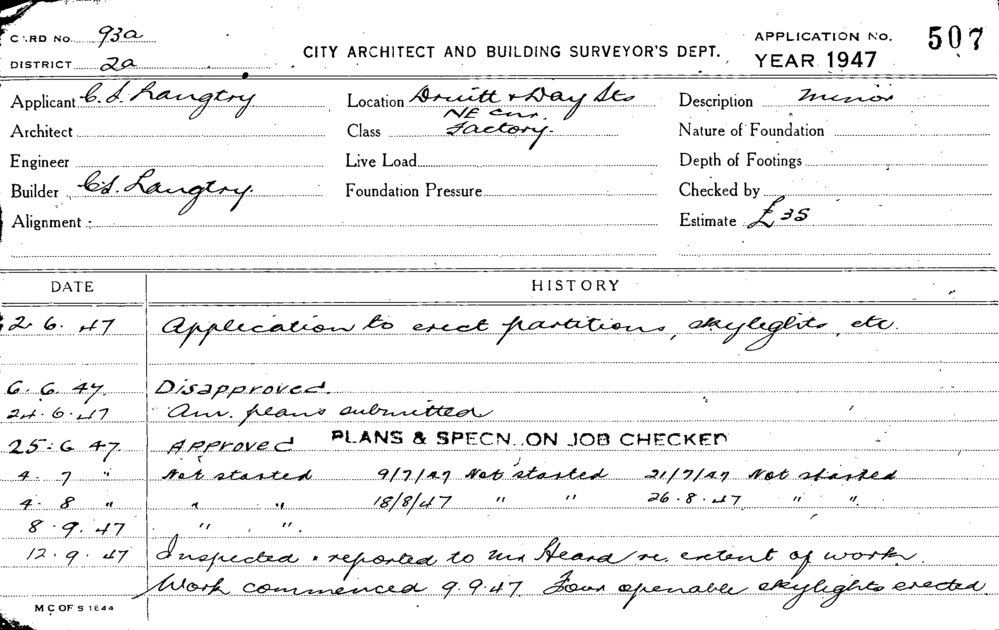 CARD NO. 93a
DISTRICT 2a
CITY ARCHITECT AND BUILDING SURVEYOR'S DEPT.
APPLICATION NO. 507
YEAR 1947
Applicant C. S. Langtry
Location Druitt & Day Sts
NE Cnr.
Description Minor
Architect
Class Factory.
Nature of Foundation
Engineer
Live Load
Depth of Footings
Builder C.S. Langtry.
Foundation Pressure
Checked by
Alignment
Estimate £35
DATE HISTORY
2. 6. 47 Application to erect partitions, skylights, etc.
6. 6. 47. Disapproved.
24. 6. 47 Am. plans submitted
25. 6 47. Approved PLANS & SPECN. ON JOB CHECKED
4. 7 " Not started 9/7/47 Not started 21/7/47 Not started
4. 8 " " " 18/8/47 " " 26.8.47 " "
8. 9. 47 " "
12. 9. 47 Inspected & reported to Mr Heard re. extent of work.
Work commenced 9.9.47. Four openable skylights erected
M C OF S 1644